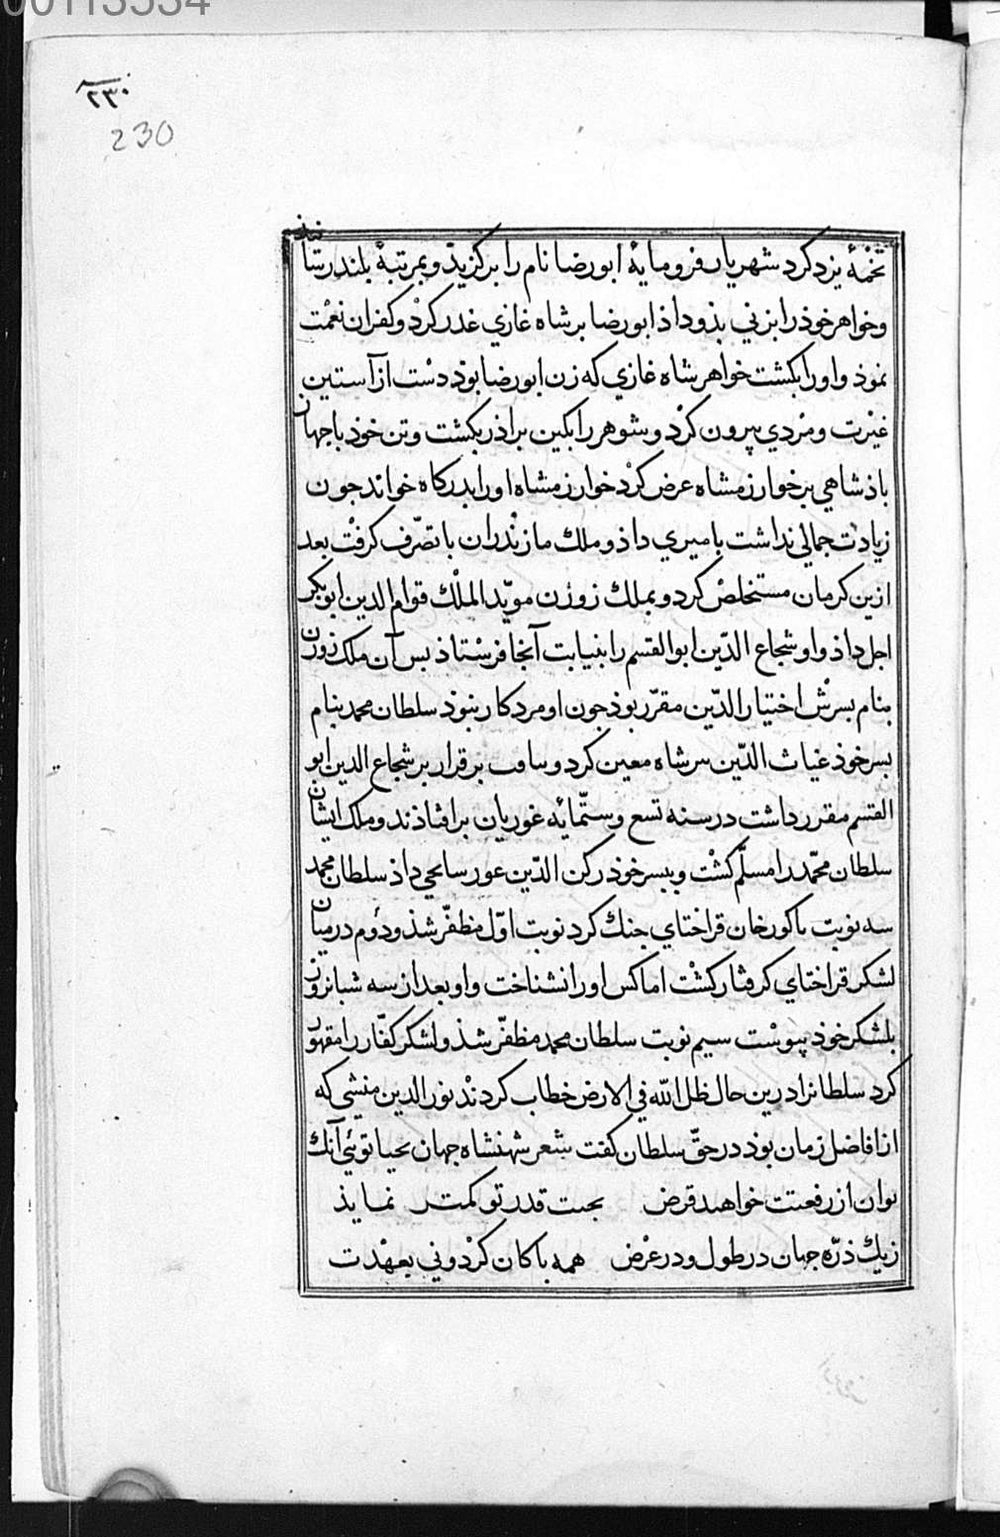 00113534
۲۳۰
230
تخمهٔ یزدکرد شهریار فرومایهٔ ابورضا نام را برکزیذ و بمرتبهٔ بلند رسانید
وخواهر خوذ را بزنی بذو داذ ابورضا بر شاه غازی غدر کرد و کفران نعمت
نموذ و اورا بکشت خواهر شاه غازی که زن ابورضا بوذ دست از آستین
غیرت و مردی بیرون کرد و شوهر را بکین براذر بکشت و تن خوذ با جهان
باذشاهی بر خوارزمشاه عرض کرد خوارزمشاه اورا بدرکاه خواند جون
زیادت جمالی نداشت بامیری داذ و ملك مازندران با تصرّف کرفت بعد
ازین کرمان مستخلص کرد و بملك زوزن مویّد الملك قوام الدین ابوبکر
اجل داذ و او شجاع الدّین ابوالقسم را بنیابت آنجا فرستاذ بس آن ملك زوزن
بنام بسرش اختیار الدّین مقرّر بوذ جون او مرد کار نبوذ سلطان محمد بنام
بسر خوذ غیاث الدّین شاه معین کرد و برقرار بر شجاع الدین ابو
القسم مقرر داشت در سنه تسع وستّمائه غوریان برافتاذند و ملك ایشان
سلطان محمّد را مسلّم کشت و ببسر خوذ رکن الدّین داذ سلطان محمد
سه نوبت با کورخان قراختای جنك کرد نوبت اوّل مظفّر شذ و دؤم در میان
لشکر قراختای کرفتار کشت اما کس اورا نشناخت و او بعد از سه شبانروز
بلشکر خوذ بیوست سیم نوبت سلطان محمد مظفّر شذ و لشکر کفّار را مقهور
کرد سلطانرا درین حال ظل الله فی الارض خطاب کردند نور الدین منشی که
از افاضل زمان بوذ در حقّ سلطان کفت شعر شهنشاه جهان توئی آنك
توان از رفعتت خواهند قرض بجنب قدر تو کمتر نماید
زیك ذرّه جهان در طول و در عرض همه باکان کردونی بعهدت